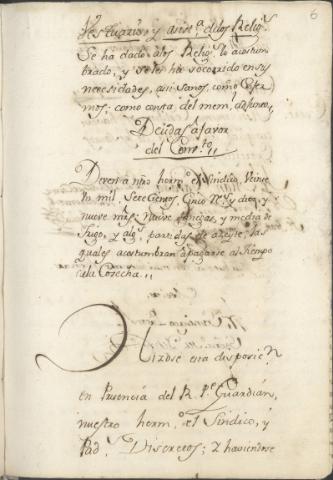 6
Vestuario, y asist.ª de los Relig.s
Se ha dado alos Relig.s lo acostum
brado, y se les ha socorrido en sus
necesidades, asi sanos, como Enfer
mos; como consta del mem.l
Deudas a favor
del Conv.to
Deven a nro herm.o el Sindico, Veinte
mil, Setecientos, Cinco r.s y diez, y
nueve mrs; nueve fanegas, y media de
trigo, y alg.s partidas de azeyte; las
quales acostumbran a pagarse al tiempo
de la Cosecha.
Hizose esta disposic.n
en Presencia del R. P.e Guardian,
nuestro herm.o el Sindico, y
Pad.s Discretos; y haviendose